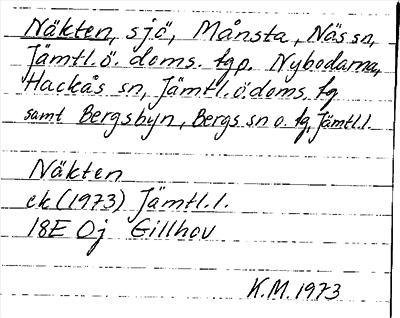 Näkten, sjö, Månsta, Näs sn,
Jämtl.ö. doms. tgp. Nybodarna,
Hackås sn, Jämtl.ö.doms. tg
samt Bergsbyn, Bergs sn o. tg, Jämtl.l.
Näkten
ek (1973) Jämtl.l.
18E 0j Gillhov
K.M. 1973